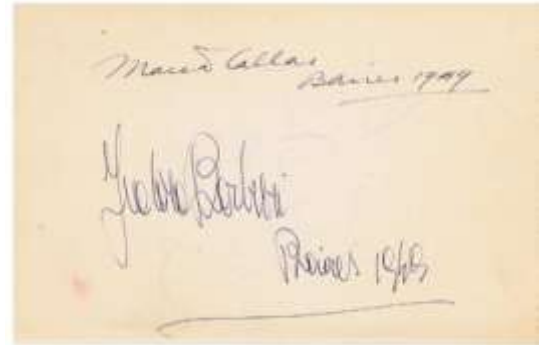 Maria Callas
Baires 1949
Fedora Barbieri
Baires 1949